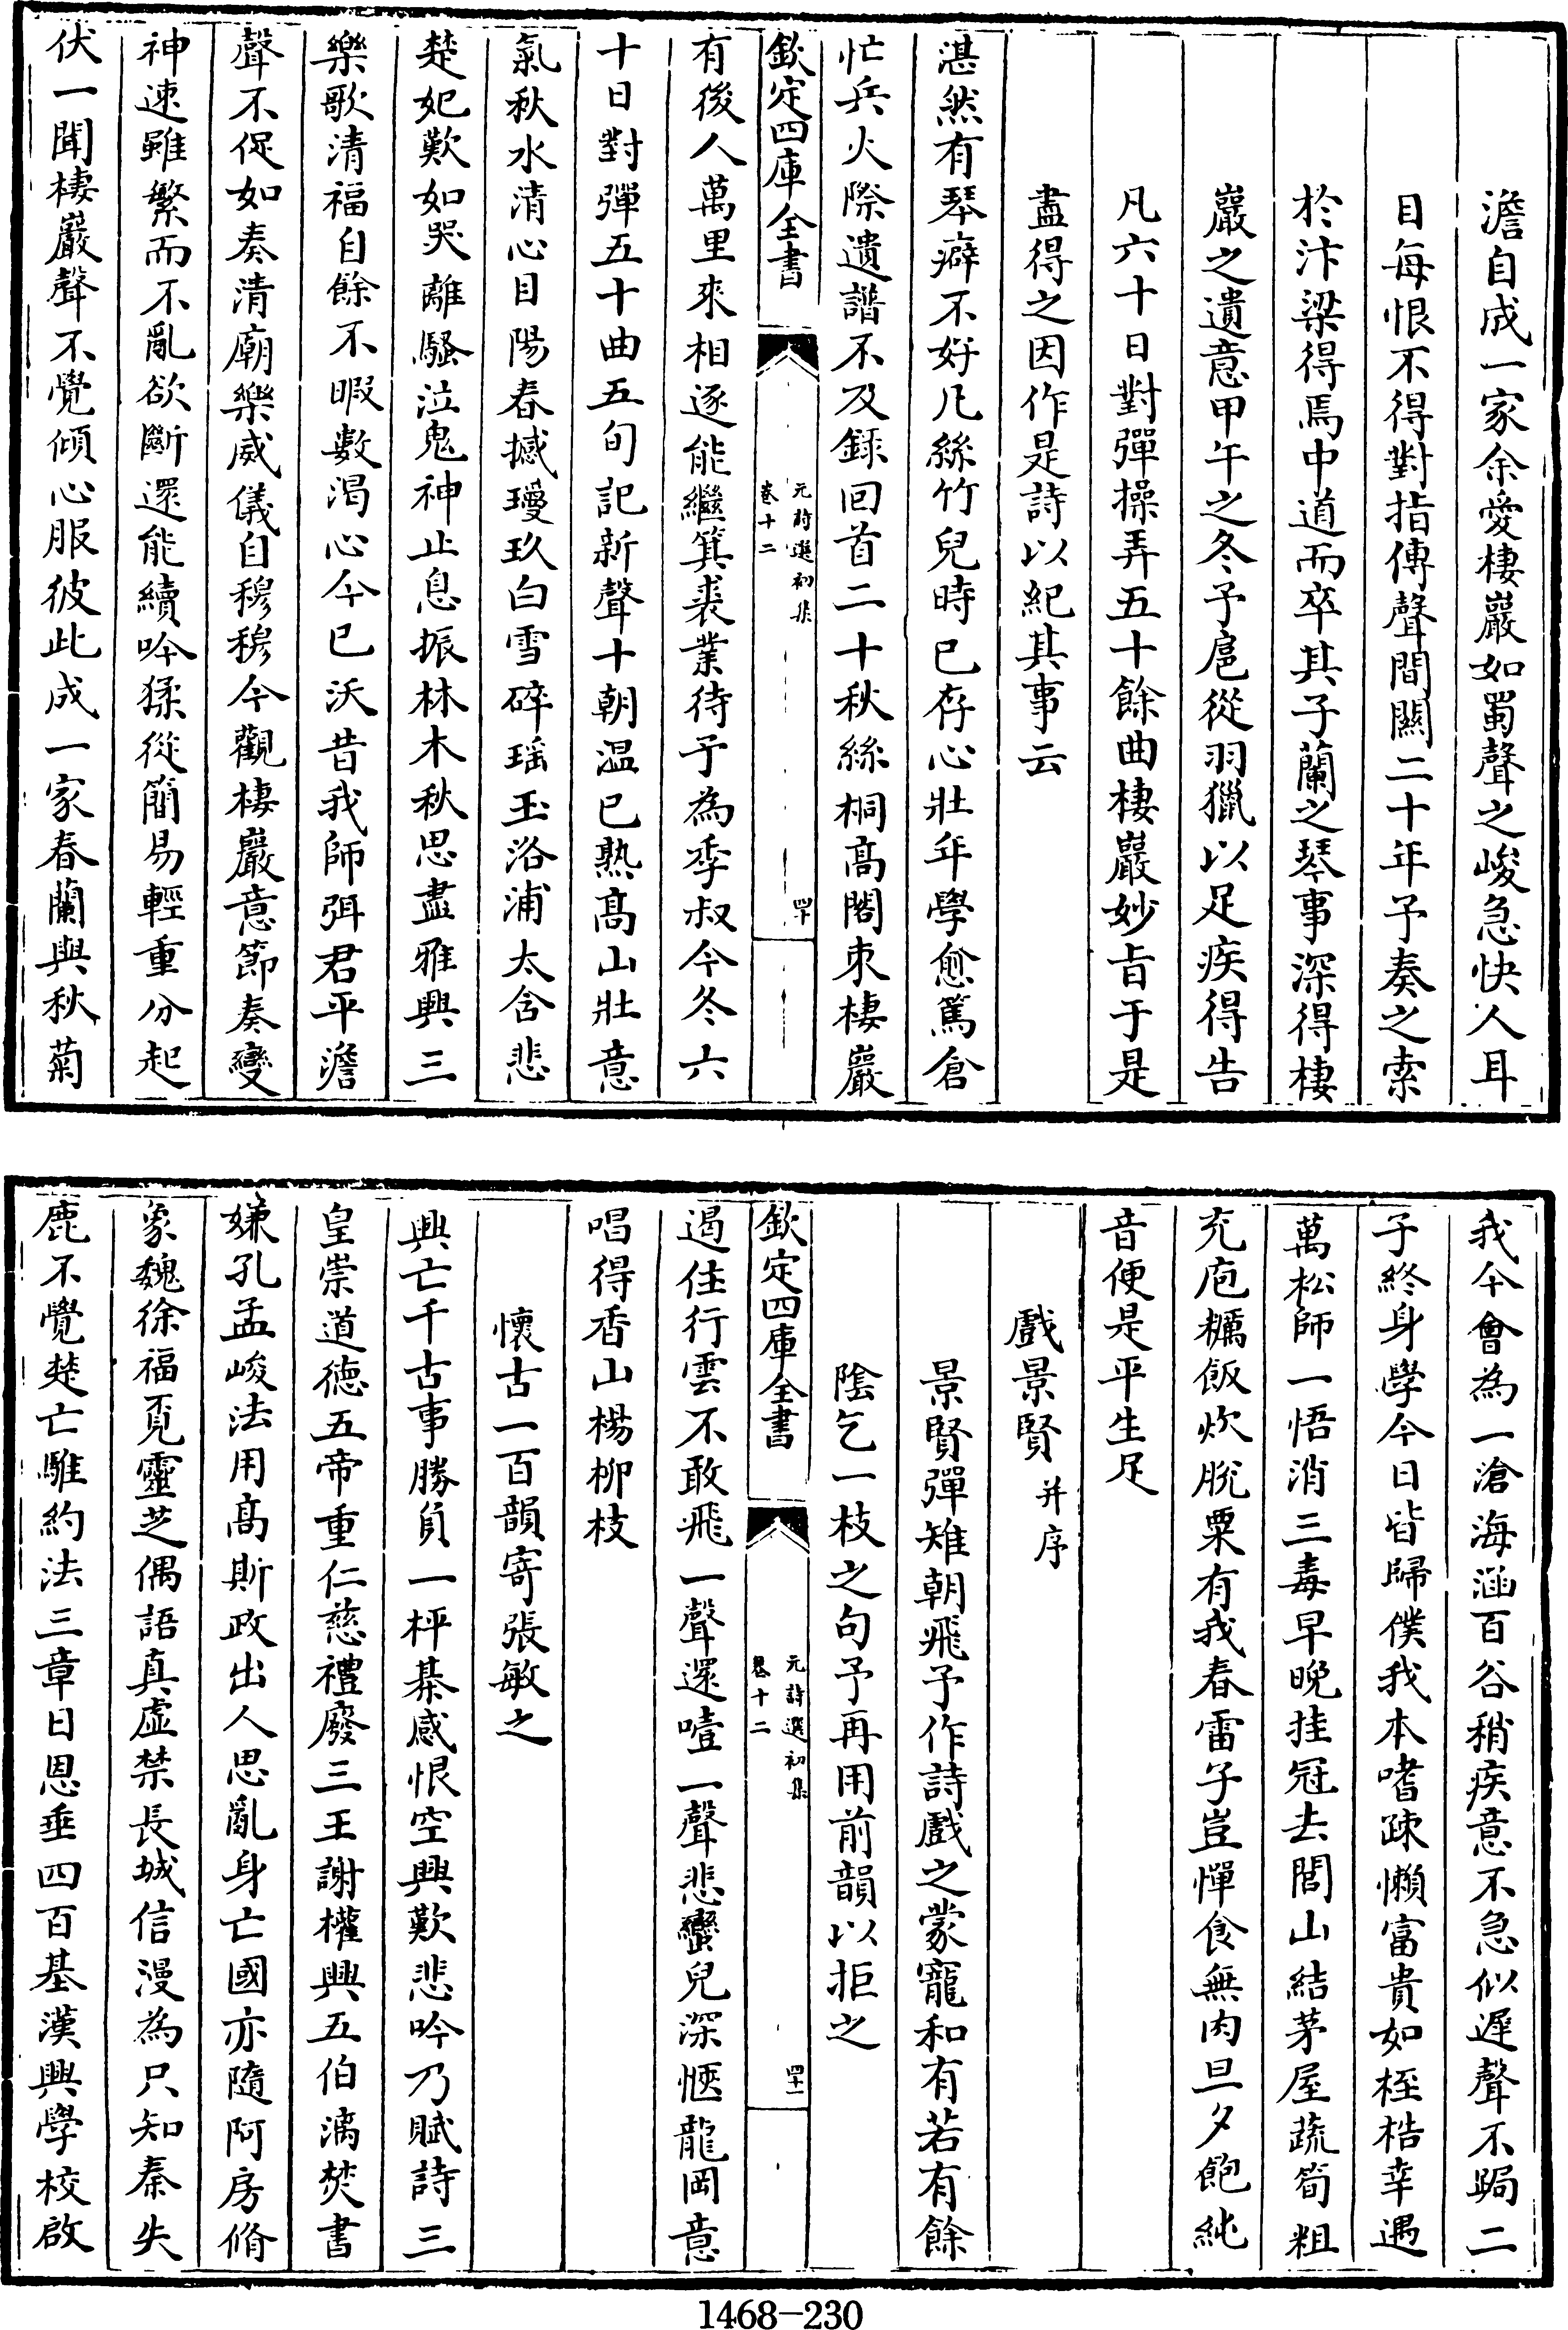 澹自成一家余愛棲巖如蜀聲之峻急快人耳
目每恨不得對指傳聲間闗二十年予奏之索
於汴梁得焉中道而卒其子蘭之琴事深得棲
巖之遺意甲午之冬予扈從羽獵以足疾得告
凡六十日對彈操弄五十餘曲棲巖妙旨于是
盡得之因作是詩以紀其事云
湛然有琴癖不好凡絲竹兒時已存心壯年學愈篤倉
忙兵火際遺譜不及錄回首二十秋絲桐髙閣朿棲巖
欽定四庫全書
元詩選初集
卷十二
四十
有後人萬里來相逐能繼箕裘業待予為季叔今冬六
十日對彈五十曲五旬記新聲十朝温已熟髙山壯意
氣秋水清心目陽春撼瓊玖白雪碎瑶玉洛浦太含悲
楚妃歎如哭離騷泣鬼神止息振林木秋思盡雅興三
樂歌清福自餘不暇數渴心今已沃昔我師弭君平澹
聲不促如奏清廟樂威儀自穆穆今觀棲巖意節奏變
神速雖繁而不亂欲斷還能續吟猱從簡易輕重分起
伏一聞棲巖聲不覺傾心服彼此成一家春蘭與秋菊
我今會為一滄海涵百谷稍疾意不急似遲聲不跼二
子終身學今日皆歸僕我本嗜疎懶富貴如桎梏幸遇
萬松師一悟消三毒早晚挂冠去閭山結茅屋蔬筍粗
充庖糲飯炊脫粟有我春雷子豈憚食無肉旦夕飽純
音便是平生足
戲景賢并序
景賢彈雉朝飛予作詩戲之蒙寵和有若有餘
陰乞一枝之句予再用前韻以拒之
欽定四庫全書
元詩選初集
卷十二
四十一
遏住行雲不敢飛一聲還噎一聲悲蠻兒深愜龍岡意
唱得香山楊柳枝
懷古一百韻寄張敏之
興亡千古事勝負一枰棊感恨空興歎悲吟乃賦詩三
皇崇道徳五帝重仁慈禮廢三王謝權興五伯漓焚書
嫌孔孟峻法用髙斯政出人思亂身亡國亦隨阿房脩
象魏徐福覔靈芝偶語真虚禁長城信漫為只知秦失
鹿不覺楚亡騅約法三章日恩垂四百基漢興學校啟
1468-230